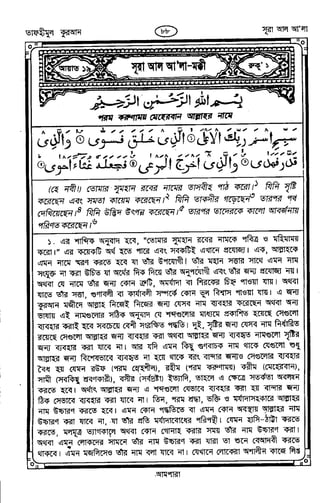 তাফহীমুল কুরআন
৮৮
সূরা আল আ'লা
আয়াত ১৯
সূরা আল আ'লা-মক্কী
রুকূ' ১
بِسْمِ اللهِ الرَّحْمٰنِ الرَّحِيْمِ
পরম করুণাময় মেহেরবান আল্লাহর নামে
سَبِّحِ اسْمَ رَبِّكَ الْأَعْلَى ۝ الَّذِي خَلَقَ فَسَوَّى ۝ وَالَّذِي
قَدَّرَ فَهَدَى ۝ وَالَّذِي أَخْرَجَ الْمَرْعَى ۝ فَجَعَلَهُ غُثَاءً أَحْوَى ۝
(হে নবী!) তোমার সুমহান রবের নামের তাসবীহ পাঠ করো।১ যিনি সৃষ্টি
করেছেন এবং সমতা কায়েম করেছেন।২ যিনি তাকদীর গড়েছেন৩ তারপর পথ
দেখিয়েছেন।৪ যিনি উদ্ভিদ উৎপন্ন করেছেন।৫ তারপর তাদেরকে কালো আবর্জনায়
পরিণত করেছেন।৬
১. এর শাব্দিক অনুবাদ হবে, "তোমার সুমহান রবের নামকে পবিত্র ও মহিমাময়
করো।" এর কয়েকটি অর্থ হতে পারে এবং সবকটিই এখানে প্রযোজ্য। এক, আল্লাহকে
এমন নামে স্মরণ করতে হবে যা তাঁর উপযোগী। তাঁর মহান সত্তার সাথে এমন নাম
সংযুক্ত না করা উচিত যা অর্থের দিক দিয়ে তাঁর অনুপযোগী এবং তাঁর জন্য প্রযোজ্য নয়।
অথবা যে নামে তাঁর জন্য কোন ত্রুটি, অমর্যাদা বা শিরকের চিহ্ন পাওয়া যায়। অথবা
যাতে তাঁর সত্তা, গুণাবলী বা কার্যাবলী সম্পর্কে কোন ভুল বিশ্বাস পাওয়া যায়। এ জন্য
কুরআন মজীদে আল্লাহ নিজেই নিজের জন্য যেসব নাম ব্যবহার করেছেন অথবা অন্য
ভাষায় এই নামগুলোর সঠিক অনুবাদ যে শব্দগুলোর মাধ্যমে প্রকাশিত হয়েছে সেগুলো
ব্যবহার করাই হবে সবচেয়ে বেশী সংরক্ষিত পদ্ধতি। দুই, সৃষ্টির জন্য যেসব নাম নির্ধারিত
রয়েছে সেগুলো আল্লাহর জন্য ব্যবহার করা অথবা আল্লাহর জন্য ব্যবহৃত নামগুলো সৃষ্টির
জন্য ব্যবহার করা যাবে না। আর যদি এমন কিছু গুণবাচক নাম থাকে যেগুলো শুধু
আল্লাহর জন্য বিশেষভাবে ব্যবহৃত না হয়ে থাকে বরং বান্দার জন্যও সেগুলোর ব্যবহার
বৈধ হয় যেমন রউফ (পরম স্নেহশীল), রহীম (পরম করুণাময়) করীম (মেহেরবান),
সামী (সবকিছু শ্রবণকারী), বসীর (সর্বদ্রষ্টা) ইত্যাদি, তাহলে এ ক্ষেত্রে সতর্কতা অবলম্বন
করতে হবে। অর্থাৎ আল্লাহর জন্য এ শব্দগুলো যেভাবে ব্যবহার করা হয় বান্দার জন্য
ঠিক সেভাবে ব্যবহার করা যাবে না। তিন, পরম শ্রদ্ধা, ভক্তি ও মর্যাদাসহকারে আল্লাহর
নাম উচ্চারণ করতে হবে। এমন কোন পদ্ধতিতে বা এমন কোন অবস্থায় আল্লাহর নাম
উচ্চারণ করা যাবে না, যা তাঁর প্রতি মর্যাদাবোধের পরিপন্থী। যেমন হাসি-ঠাট্টা করতে
করতে, মলমূত্র ত্যাগকালে অথবা কোন গোনাহ করার সময় তাঁর নাম উচ্চারণ করা।
অথবা এমন লোকদের সামনে তাঁর নাম উচ্চারণ করা যারা তা শুনে বেআদবী করতে
থাকবে। এমন মজলিসেও তাঁর নাম বলা যাবে না। যেখানে লোকেরা অশালীন কাজে লিপ্ত
আমপারা